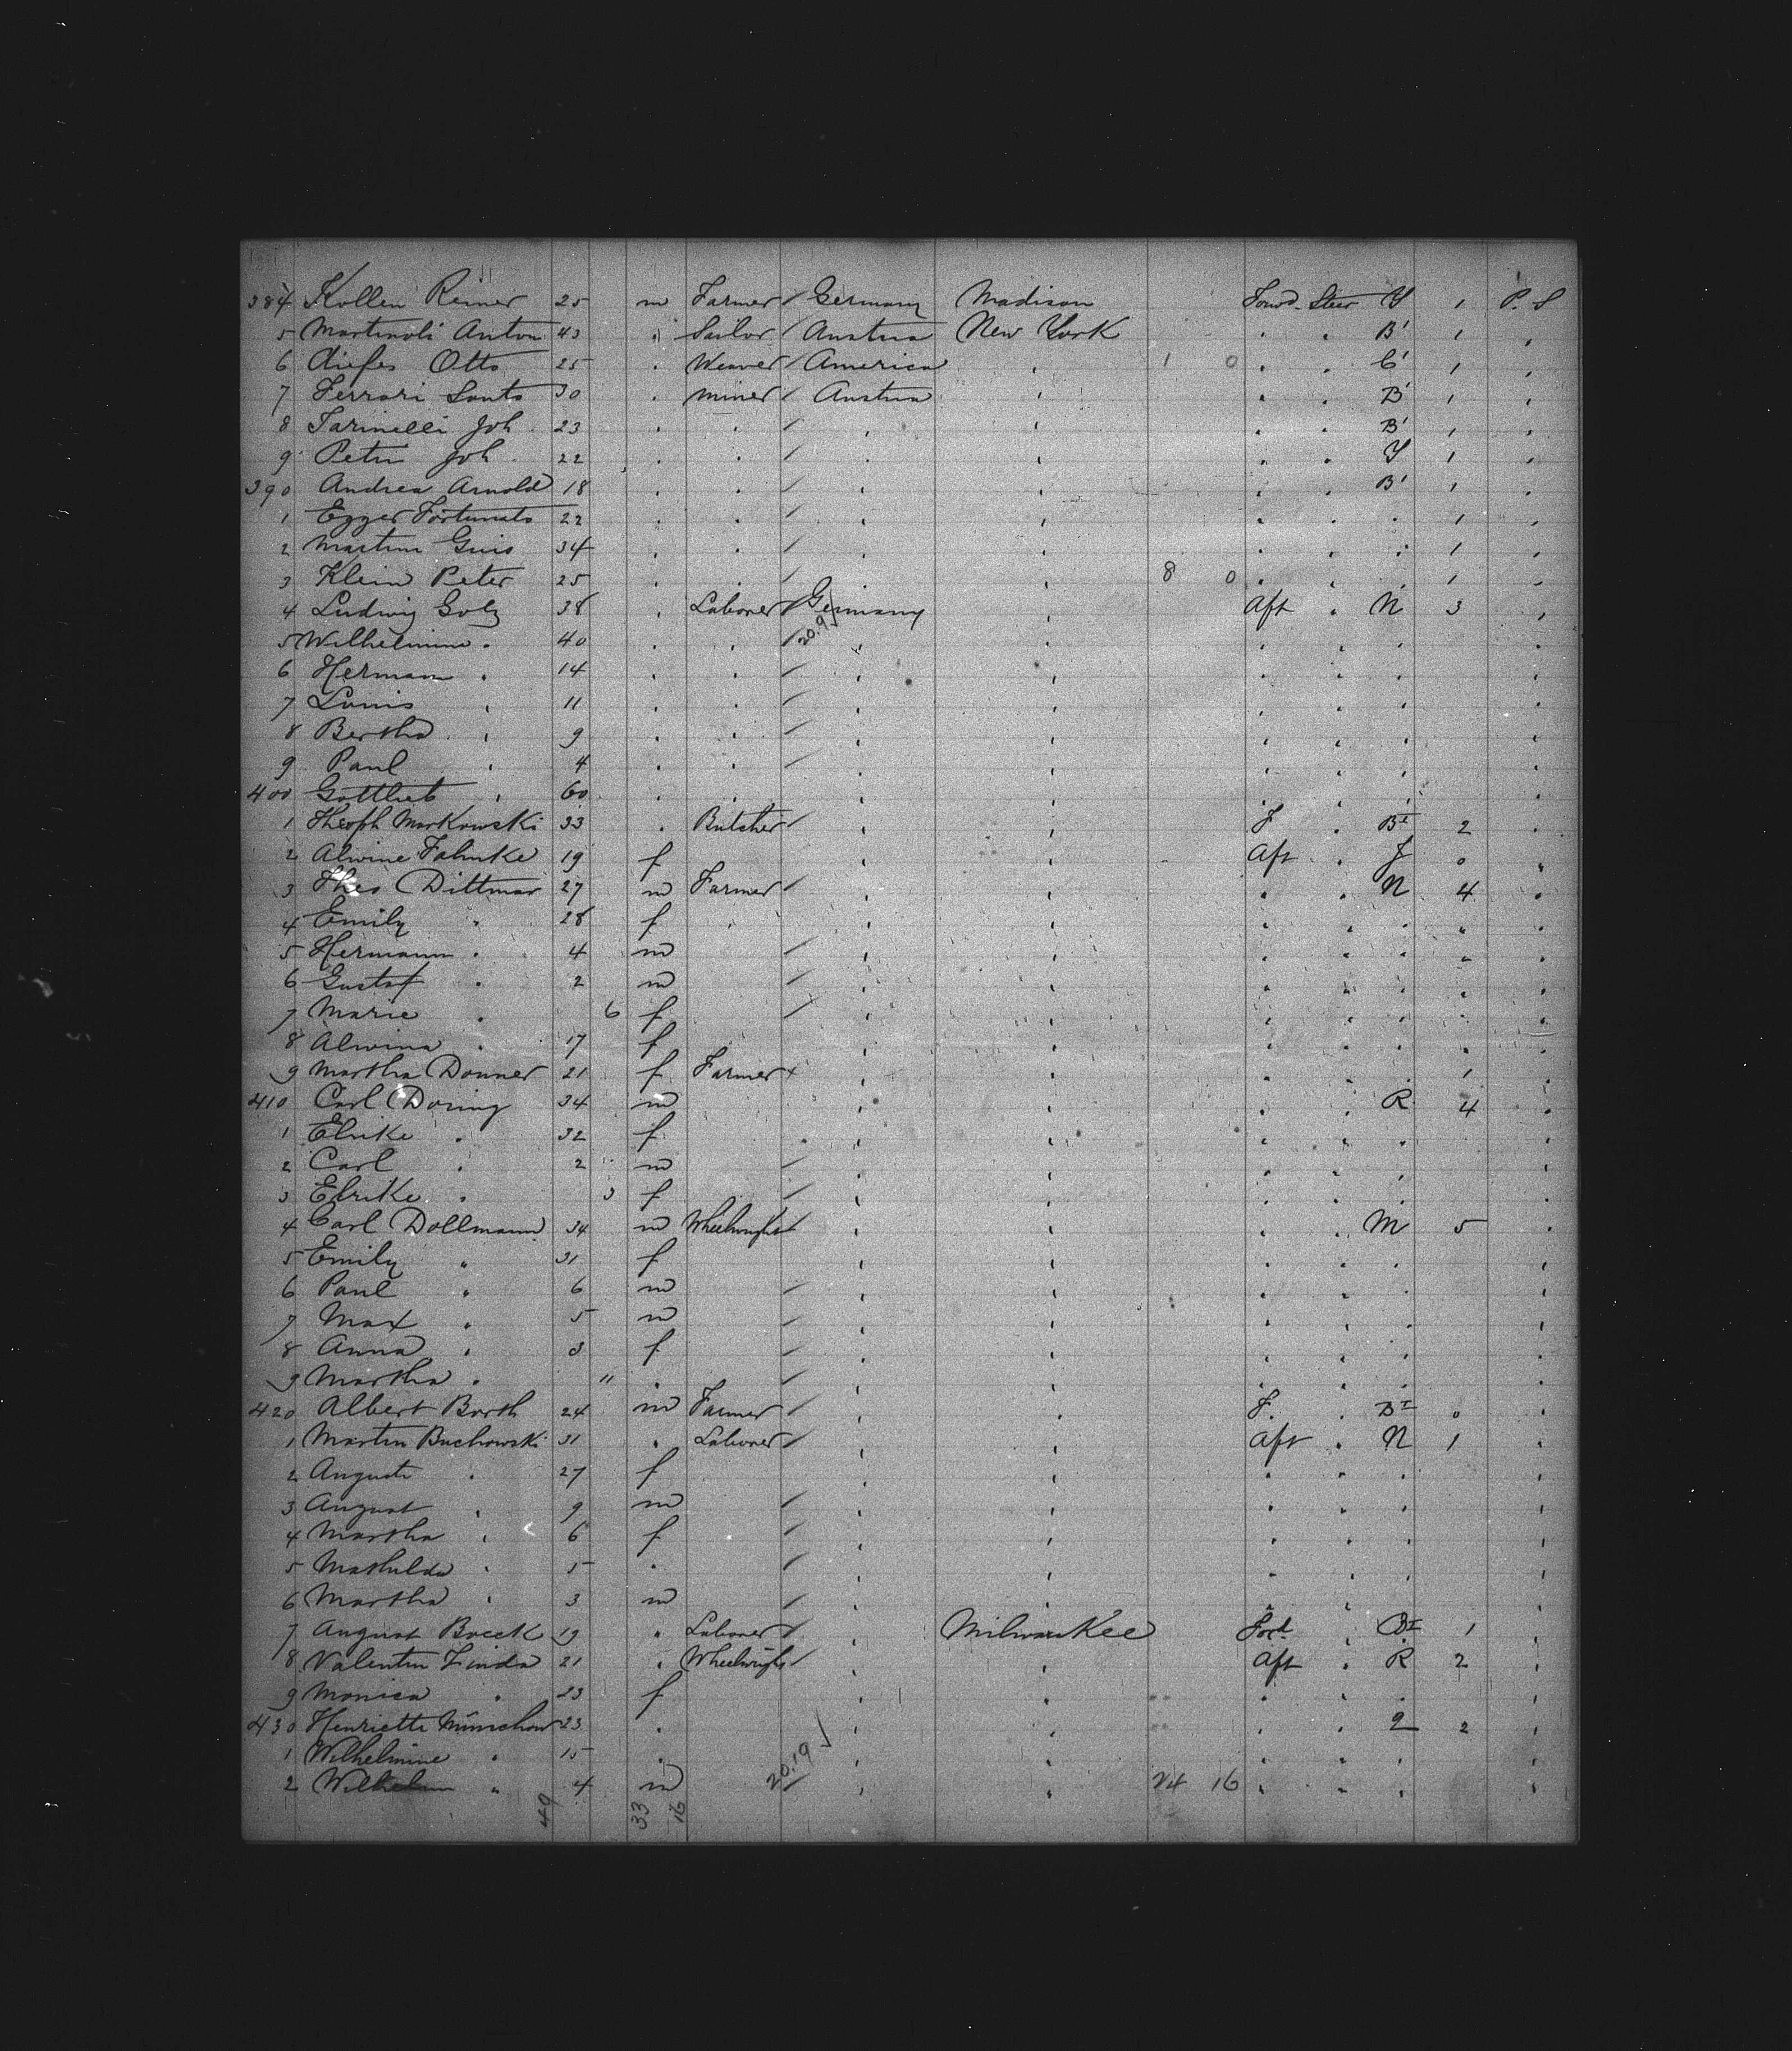 384 Kollen Reiner 25 m Farmer / Germany Madison Forwd. Steer Y 1 P. S
5 Martinoli Anton 43 " Sailor / Austria New York " " B' 1 "
6 Otto 25 " Weaver / America " 1 0 " " C' 1 "
7 Ferrari Santo 30 " Miner / Austria " " " B' 1 "
8 Farinelli Joh 23 " " / " " " " B' 1 "
9 Petri Joh 22 " " / " " " " Y 1 "
390 Andrea Arnold 18 " " / " " " " B' 1 "
1 Egger Fortunato 22 " " / " " " " " 1 "
2 Martini 34 " " / " " " " " 1 "
3 Klein Peter 25 " " / " " 8 0 " " " 1 "
4 Ludwig Golz 38 " Laborer / Germany " Aft " N 3 "
5 Wilhelmine " 40 " " / 20.9 " " " " " "
6 Hermann " 14 " " / " " " " " "
7 Louis " 11 " " / " " " " " "
8 Bertha " 9 " " / " " " " " "
9 Paul " 4 " " / " " " " " "
400 Gottlieb " 60 " " " " " " " "
1 Theoph Markowski 33 " Butcher / " " F " BI 2 "
2 Alwine Fahnke 19 f " " Aft " J 0 "
3 Theo Dittmar 27 m Farmer / " " " " N 4 "
4 Emily " 28 f " " " " " " " "
5 Hermann " 4 m / " " " " " " "
6 Gustaf " 2 m / " " " " " " "
7 Marie " 6 f / " " " " " " "
8 Alwina " 17 f " " " " " " "
9 Martha Donner 21 f Farmer " " " " " 1 "
410 Carl Doring 34 m " " " " R 4 "
1 Elrike " 32 f " " " " " "
2 Carl " 2 m / " " " " " "
3 Elrike " 3 f / " " " " " "
4 Carl Dollmann 34 m Wheelwright / " " " " M 5 "
5 Emily " 31 f " " " " " "
6 Paul " 6 m / " " " " " "
7 Max " 5 m / " " " " " "
8 Anna " 3 f / " " " " " "
9 Martha " 11 " / " " " " " "
420 Albert Barth 24 m Farmer / " " F. " BI 0 "
1 Martin Buchowski 31 " Laborer / " " Aft " N 1 "
2 Auguste " 27 f " " " " " "
3 August " 9 m / " " " " " "
4 Martha " 6 f / " " " " " "
5 Mathilda " 5 " / " " " " " "
6 Martha " 3 m / " " " " " "
7 August Boeck 19 " Laborer / " Milwaukee Ford. " BI 1 "
8 Valentin Linda 21 " Wheelwright / " " Aft " R 2 "
9 Monica " 23 f " " " " " "
430 Henriette Münchow 23 " " " " " 2 2 "
1 Wilhelmine " 15 " " " " " " "
2 Wilhelm " 4 m 20.19 / " " 24 16 " " " "
49 33 16